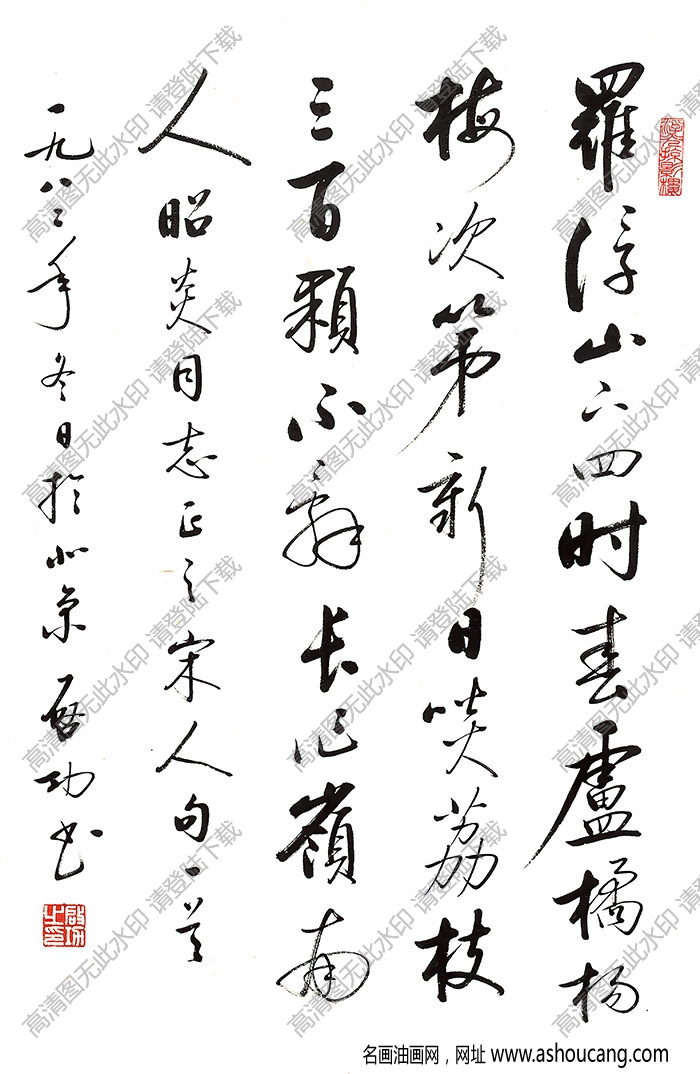 羅浮山下四时春盧橘杨
梅次第新日啖荔枝
三百颗不辞长作嶺南
人 昭炎同志正之 宋人句一首
一九八二年冬日於北京 启功书
啟功之印
高清图无此水印 请登陆下载
名画油画网，网址 www.ashoucang.com